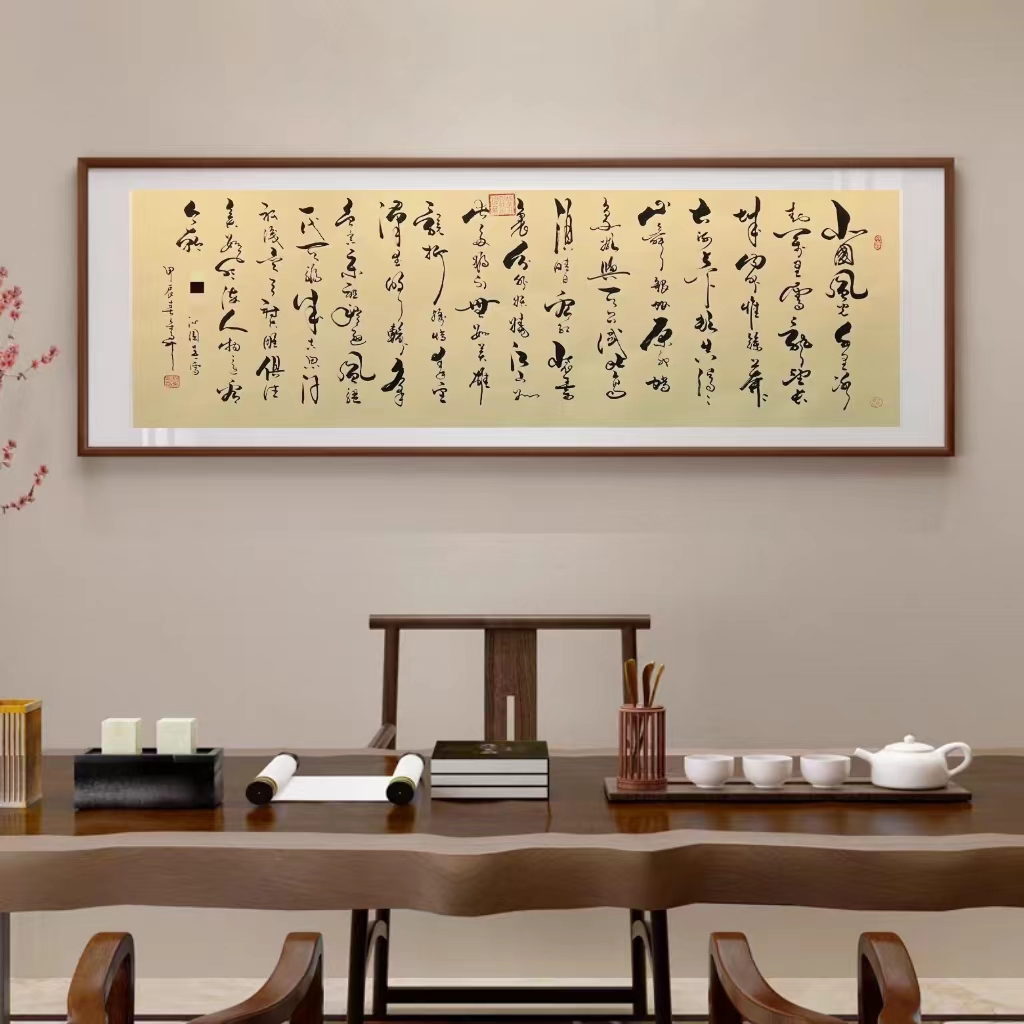 北國風光千里冰
封萬里雪飄望長
城内外惟餘莽莽
大河上下頓失滔滔
山舞銀蛇原馳蠟
象欲與天公試比高
須晴日看紅裝素
裹分外妖嬈江山如
此多嬌引無數英雄
競折腰惜秦皇
漢武略輸文采
唐宗宋祖稍遜風騷
一代天驕成吉思汗
只識彎弓射大雕俱往
矣數風流人物還看
今朝
沁園春雪
甲辰春